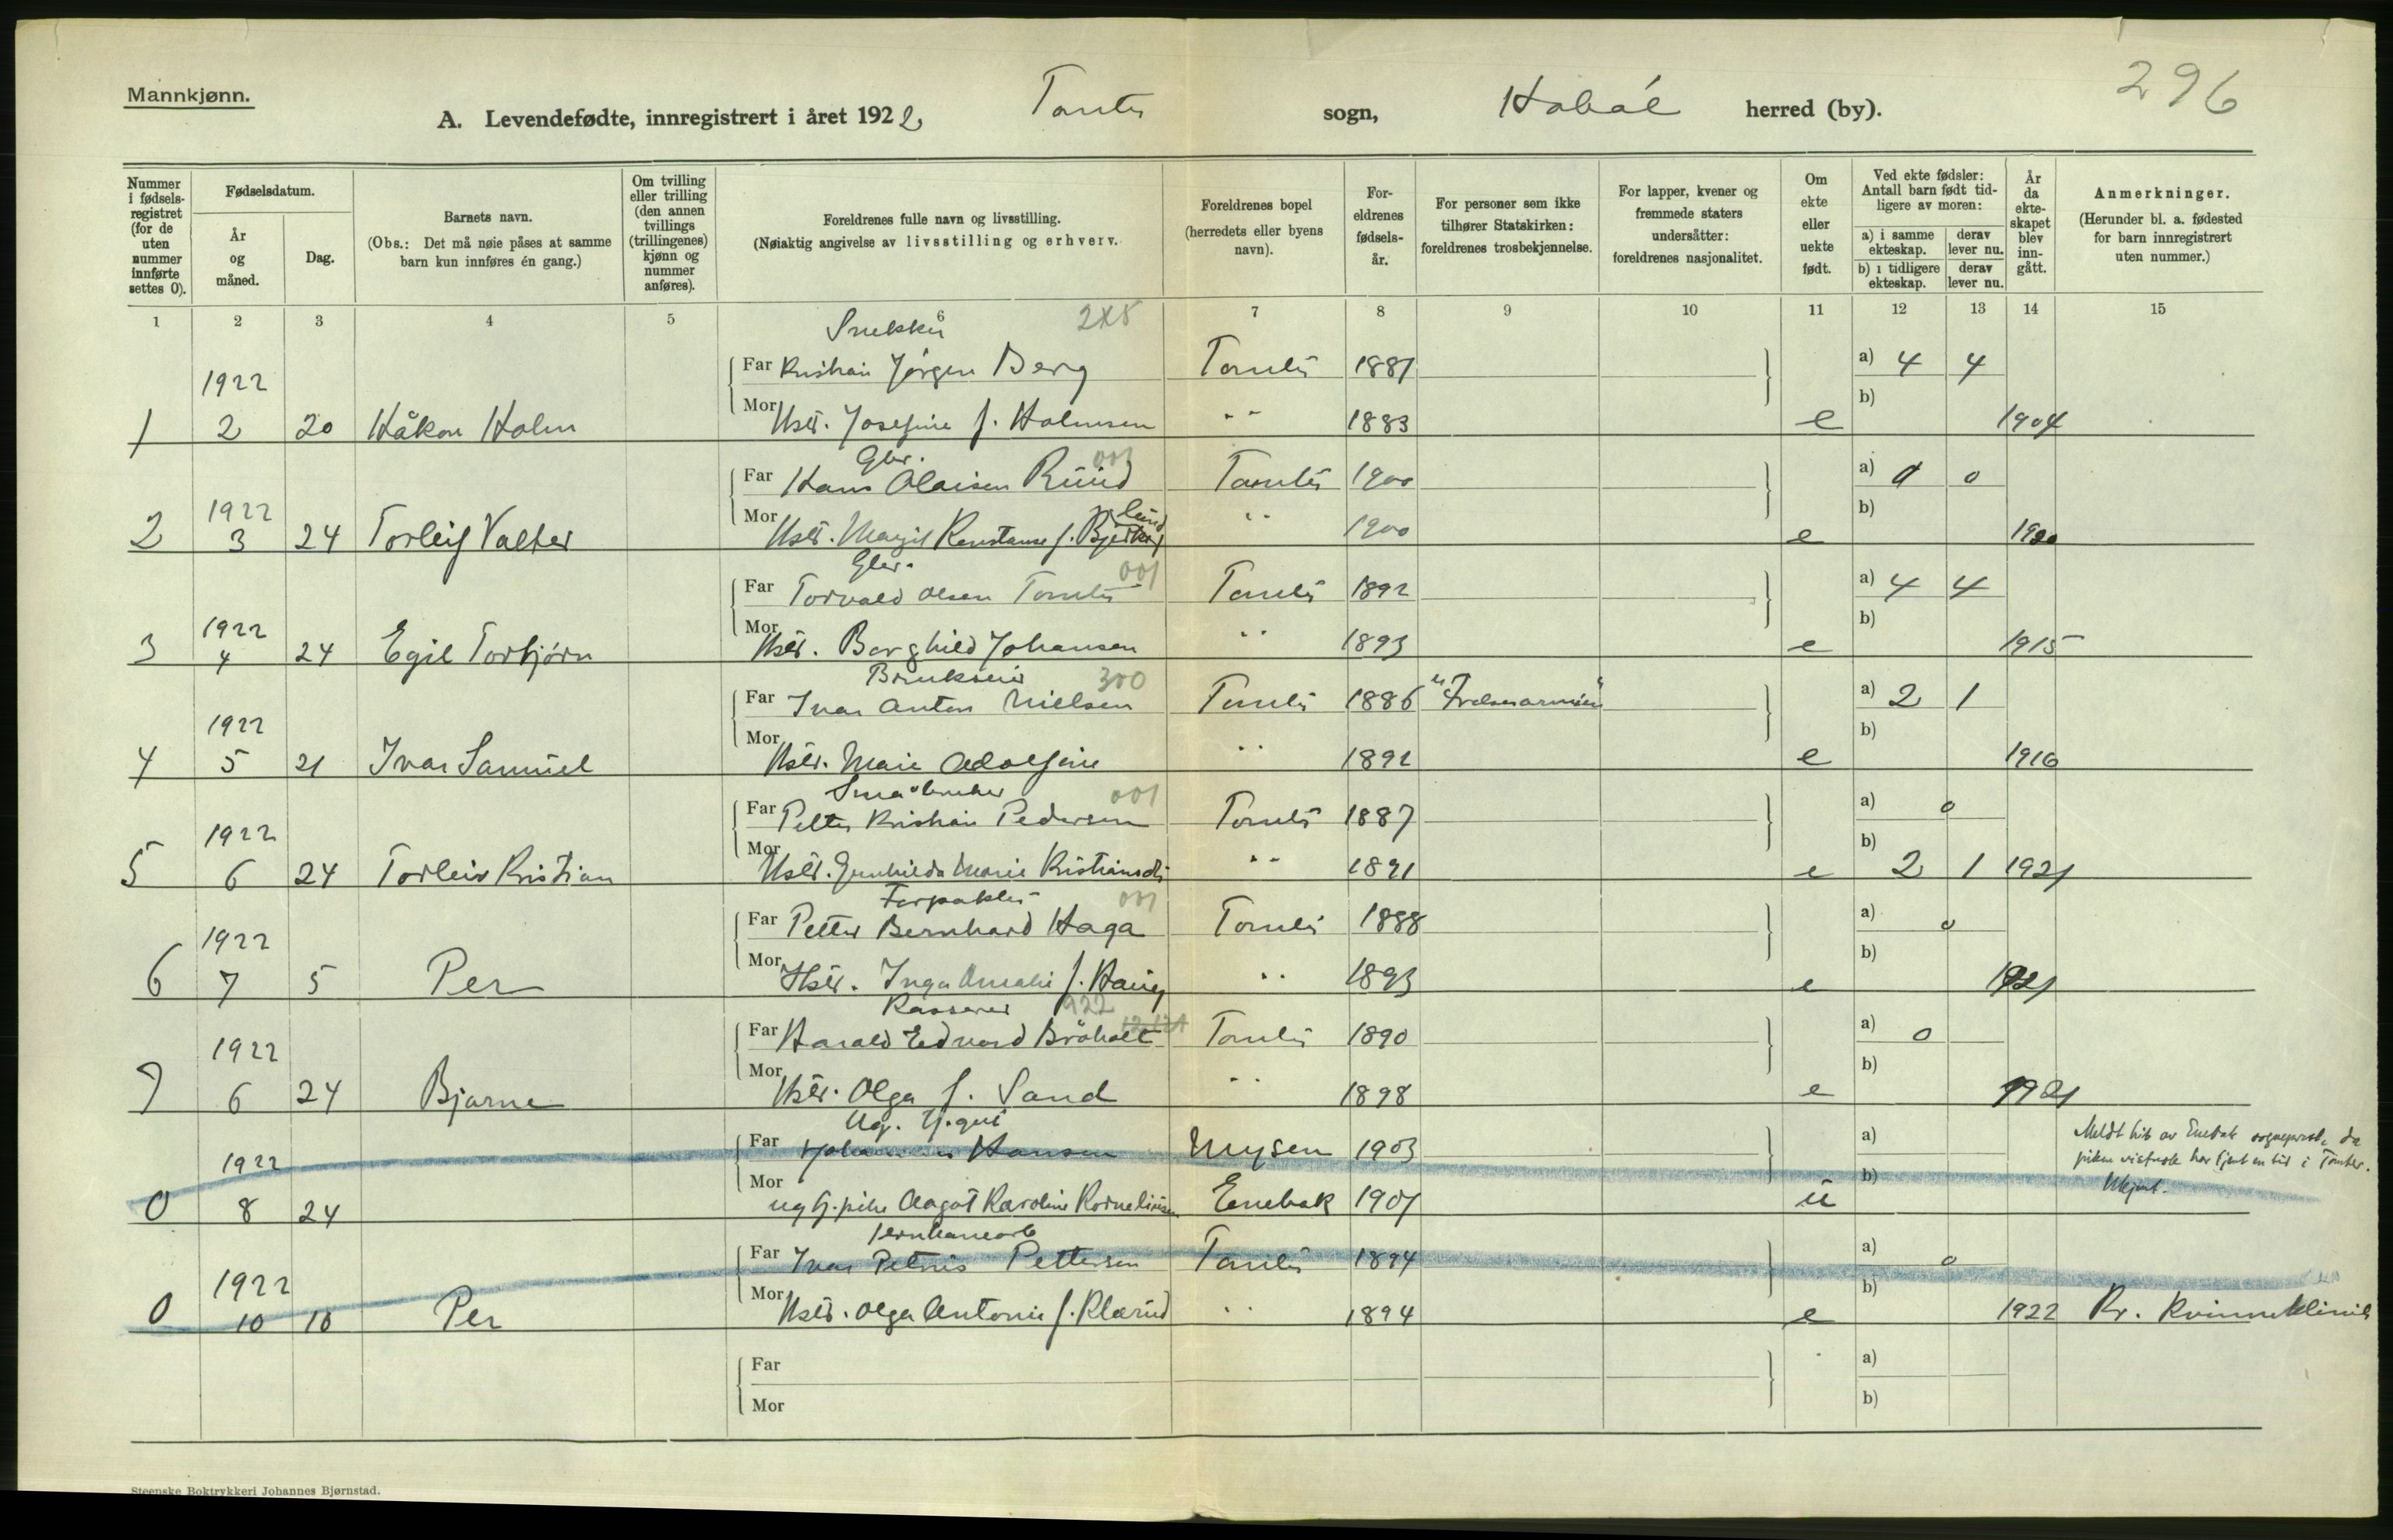 Mannkjønn.
296
A. Levendefødte, innregistrert i året 1922 Tomter sogn, Hobøl herred (by).
Nummer i fødsels-registret (for de uten nummer innførte settes 0).
Fødselsdatum.
År og måned.
Dag.
Barnets navn.
(Obs.: Det må nøie påses at samme barn kun innføres én gang.)
Om tvilling eller trilling (den annen tvillings (trillingenes) kjønn og nummer anføres).
Foreldrenes fulle navn og livsstilling.
(Nøiaktig angivelse av livsstilling og erhverv.
Foreldrenes bopel (herredets eller byens navn).
For-eldrenes fødsels-år.
For personer som ikke tilhører Statskirken: foreldrenes trosbekjennelse.
For lapper, kvener og fremmede staters undersåtter: foreldrenes nasjonalitet.
Om ekte eller uekte født.
Ved ekte fødsler: Antall barn født tid-ligere av moren:
a) i samme ekteskap.
derav lever nu.
b) i tidligere ekteskap.
derav lever nu.
År da ekte-skapet blev inn-gått.
Anmerkninger.
(Herunder bl. a. fødested for barn innregistrert uten nummer.)
1 2 3 4 5 6 7 8 9 10 11 12 13 14 15
Snekker
Far Kristian Jørgen Berg Tomter 1881 a) 4 4
1922 b)
1 2 20 Håkon Holm Mor Hustr. Josefine f. Holmsen " 1883 e 1904
Gbr. 001
Far Hans Olaisen Ruud Tomter 1900 a) 0
1922 b)
2 3 24 Torleif Valter Mor Hustr. Margit Konstanse f. " 1900 e 1920
Gbr. 001
Far Torvald Olsen Tomter Tomter 1892 a) 4 4
1922 b)
3 4 24 Egil Torbjørn Mor Hustr. Borghild Johansen " 1893 e 1915
Brukseier 300
Far Ivar Anton Nielsen Tomter 1886 "Frelsesarmeen" a) 2 1
1922 b)
4 5 21 Ivar Samuel Mor Hustr. Marie Adolfine " 1892 e 1916
Småbruker 001
Far Petter Kristian Pedersen Tomter 1887 a) 0
1922
5 6 24 Torleiv Kristian Mor Hustr. Gunhilda Marie Kristiansdtr " 1891 e b) 2 1 1921
Forpakter 001
Far Petter Bernhard Haga Tomter 1888 a) 0
1922 b)
6 7 5 Per Mor Hustr. Inga Amalie f. Haug " 1893 e 1921
Kasserer 922
Far Harald Edvard Bråholt Tomter 1890 a) 0
1922 b)
7 6 24 Bjarne Mor Hustr. Olga f. Sand " 1898 e 1921
Ug. tj.gut
Far Hansen Mysen 1903 a)
Meldt hit av Enebak sogneprest, da
piken har tjent en tid i Tomter.
Ukjent.
1922 b)
0 8 24 Mor ug tj.pike Aagot Karoline Korneliusen Enebak 1901 u
Jernbanearb
Far Ivar Petrus Pettersen Tomter 1894 a) 0
1922 b)
0 10 10 Per Mor Hustr. Olga Antonie f. Klarud " 1894 e 1922 Kr. Kvinneklinik
Far a)
Mor b)
Steenske Boktrykkeri Johannes Bjørnstad.